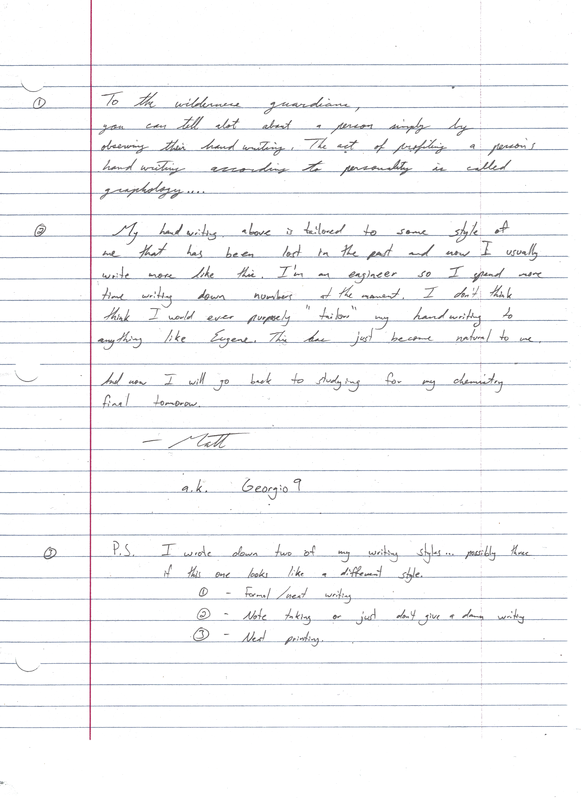 ① To the wilderness guardians,
you can tell alot about a person simply by
observing their hand writing. The act of profiling a person's
hand writing according to personality is called
graphology....
② My hand writing above is tailored to some style of
me that has been lost in the past and now I usually
write more like this. I'm an engineer so I spend more
time writing down numbers at the moment. I don't think
think I would ever purposely "tailor" my hand writing to
anything like Eugene. This has just become natural to me.
And now I will go back to studying for my chemistry
final tomorrow.
— Matt
a.k. Georgio9
③ P.S. I wrote down two of my writing styles... possibly three
if this one looks like a different style.
① - Formal/neat writing
② - Note taking or just don't give a damn writing
③ - Neat printing.